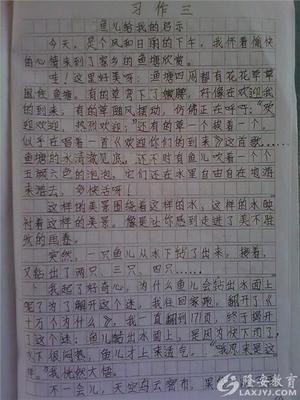 习作三
鱼儿给我的启示
今天,是个风和日丽的下午,我怀着愉快
的心情来到了家乡的鱼塘欣赏。
哇!这里好美呀。鱼塘四周都有花花草草
围住鱼塘。有的草弯下了
的到来,有的草随风摆动,仿佛正在呼:“欢
迎欢迎,热烈欢迎;”还有的草一个挨着一个,
似乎在唱着一首《欢迎你们的到来》这首歌……
鱼塘的水清澈见底,还不时有鱼儿吹着一个个
五颜六色的泡泡,它们还在水里自由自在地游
来游去,多快活呀!
这样的美景围绕着这样的水,这样的水映
衬着这样的美景,像是让你感到走进了美不胜
收的画卷。
突然,一只鱼儿从水下钻了出来,接着,
又钻出了两只、三只、四只……
我起了好奇心,为什么鱼儿会钻出水面上
呢?为了解开这个迷,我连回家跑,翻开了《
十万个为什么》,我一直翻到171页,终于揭开
了这个迷:鱼儿钻出水面上,是因为快下雨了,
水下很闷热,鱼儿才上来透气。“我原来是这
样。”我恍然大悟。
不一会儿,天空乌云密布,
隆安教育
LAXJYJ.COM